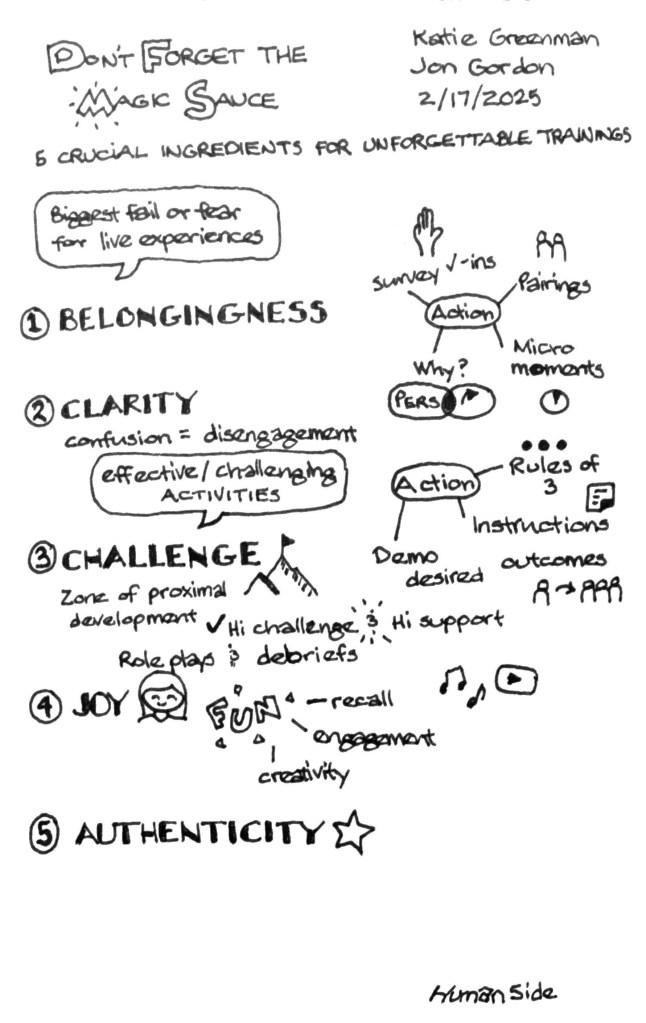 DON'T FORGET THE
MAGIC SAUCE
Katie Greenman
Jon Gordon
2/17/2025
5 CRUCIAL INGREDIENTS FOR UNFORGETTABLE TRAININGS
Biggest fail or fear
for live experiences
① BELONGINGNESS
survey √-ins
Pairings
Action
Why?
PERS
Micro
moments
② CLARITY
confusion = disengagement
effective/challenging
ACTIVITIES
Action
Rules of
3
Instructions
Demo
desired outcomes
③ CHALLENGE
Zone of proximal
development
✓ Hi challenge & Hi support
Role plays & debriefs
④ JOY
FUN
– recall
engagement
creativity
⑤ AUTHENTICITY
Human Side